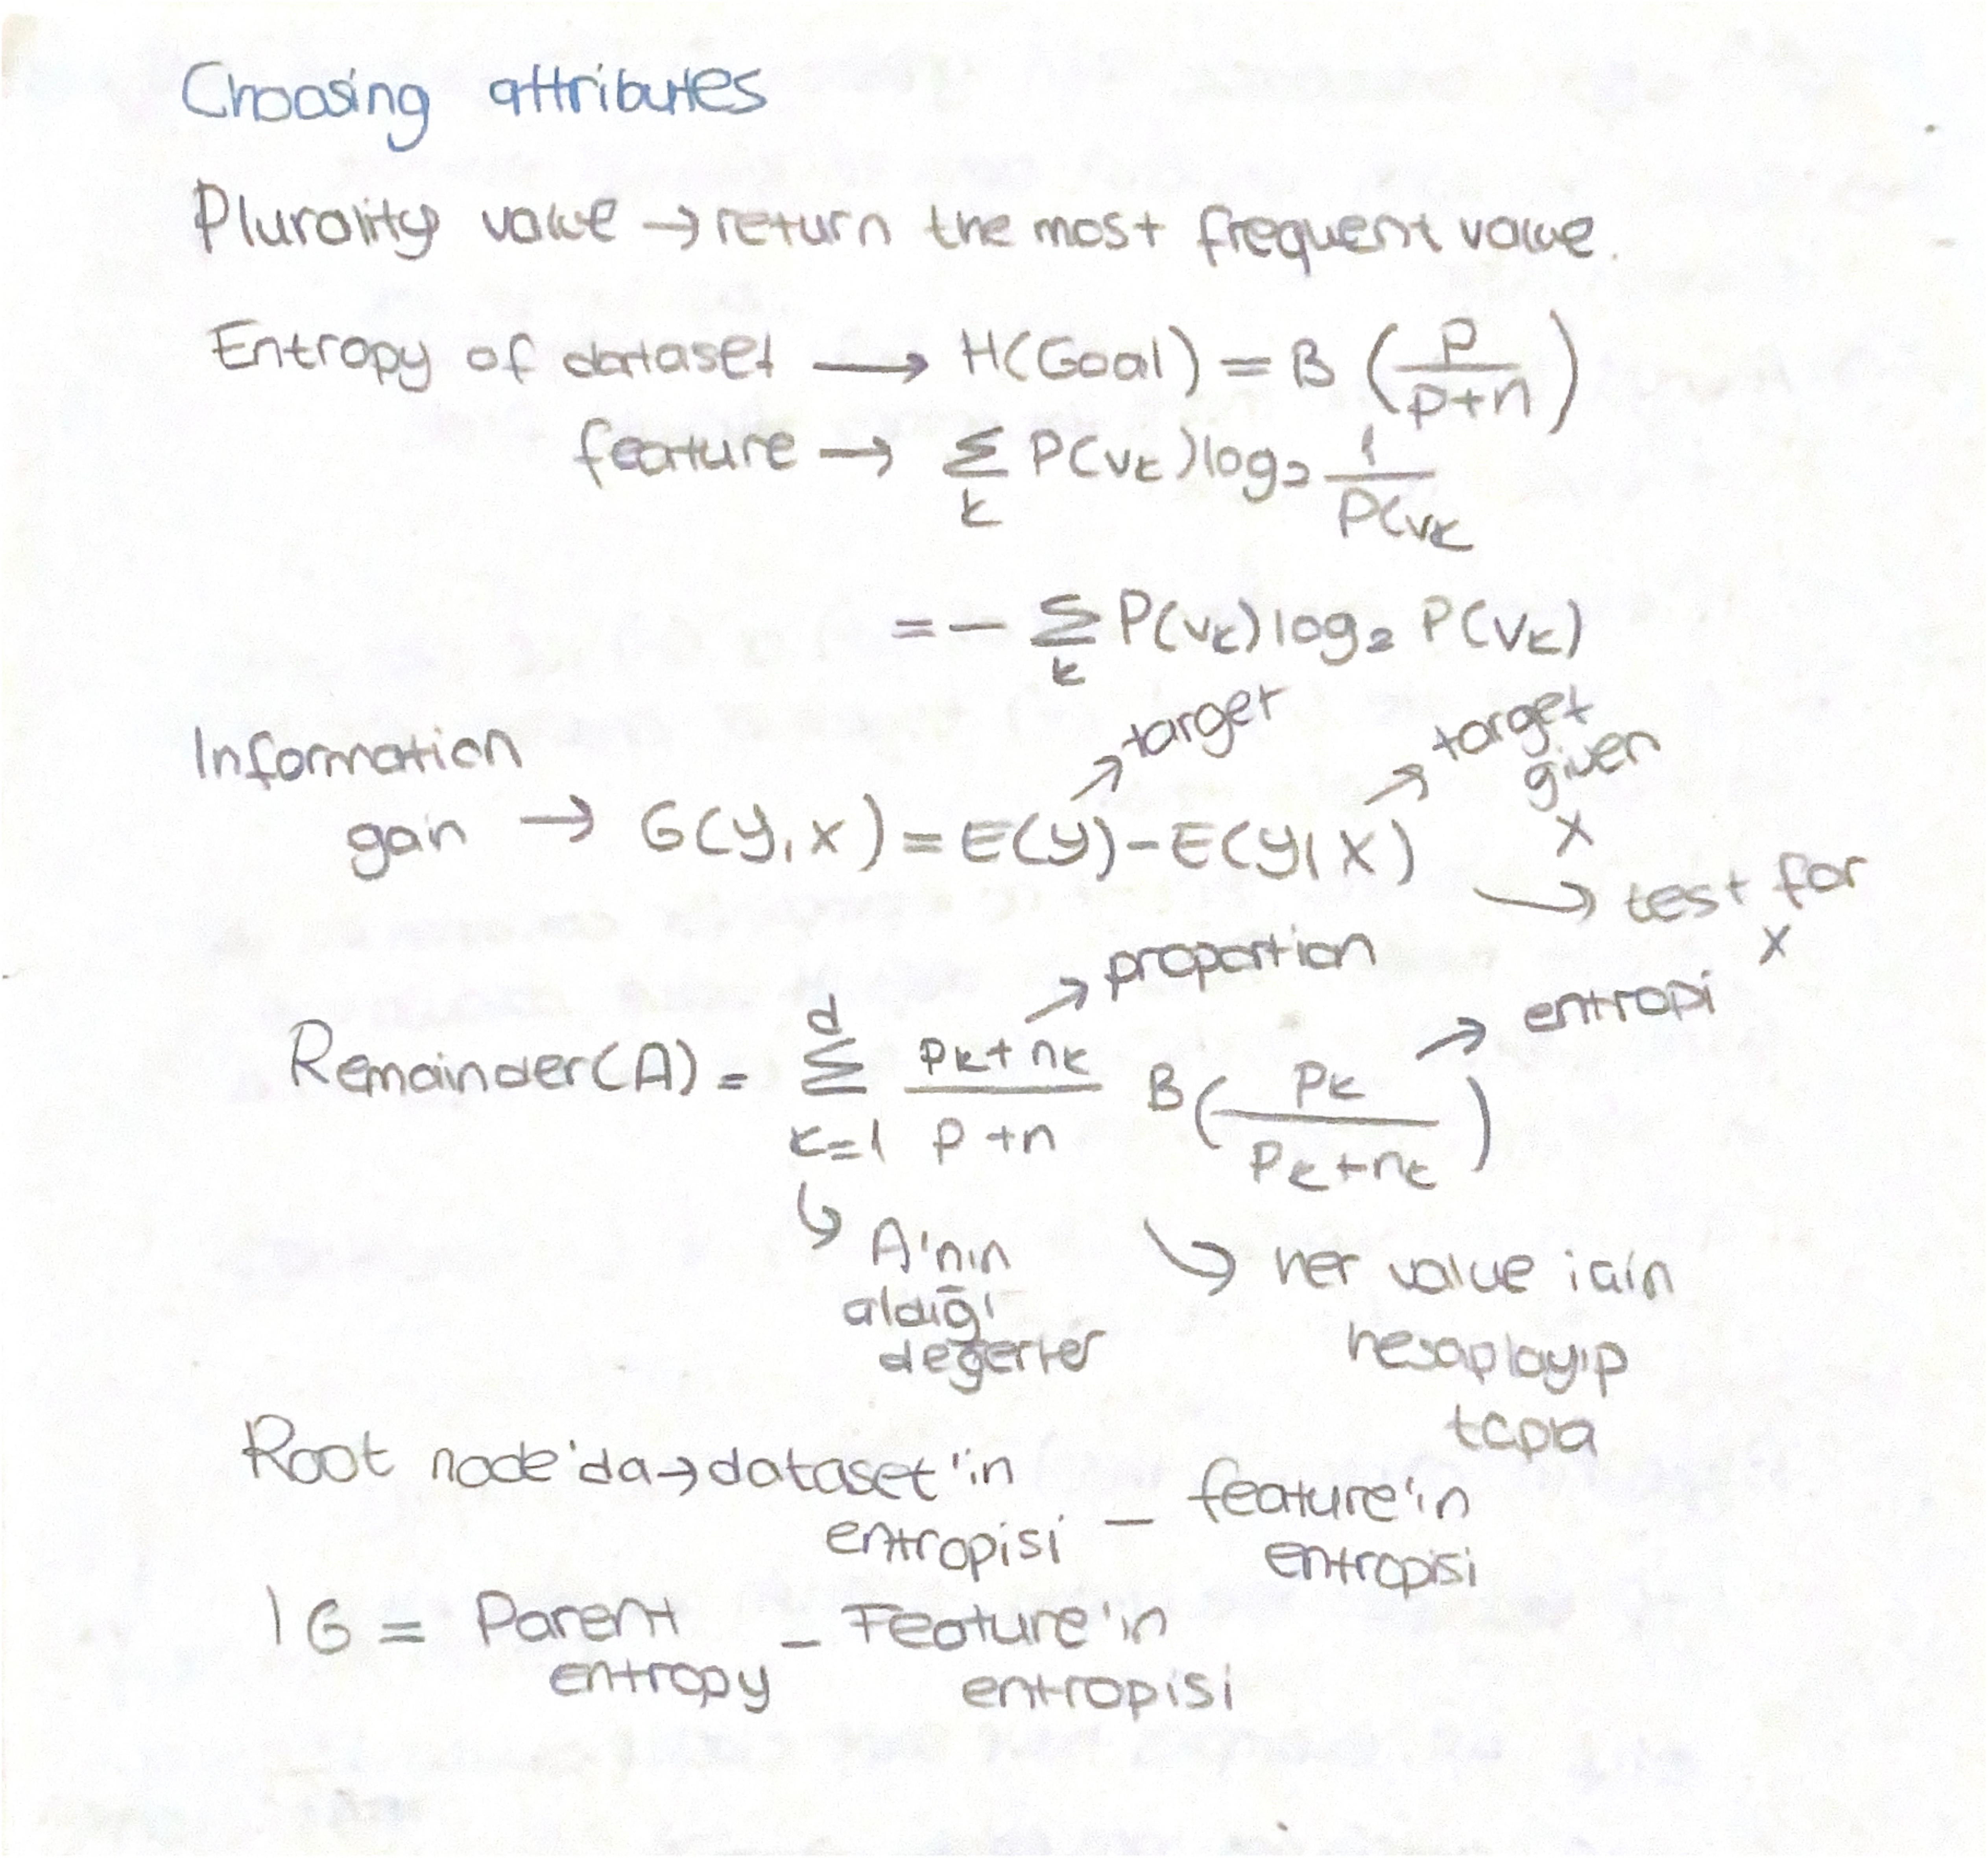 Choosing attributes
Plurality value → return the most frequent value.
Entropy of dataset → H(Goal) = B (p/(p+n))
feature → Σ_k P(vk) log2 1/P(vk
= - Σ_k P(vk) log2 P(vk)
Information
gain → G(y, x) = E(y) - E(y|x)
→ target
→ target
given
x
→ test for
x
Remainder(A) = Σ_{k=1}^{d} (pk + nk)/(p + n) B(pk/(pk + nk))
→ proportion
→ entropi
↳ A'nın
aldığı
değerler
↳ her value için
hesaplayıp
topla
Root node'da → dataset'in
entropisi - feature'in
entropisi
IG = Parent
entropy - Feature'in
entropisi